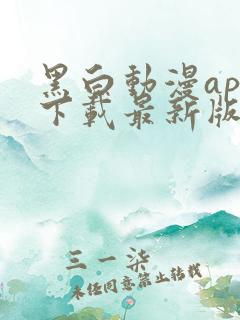 黑白動漫ap
下載最新版
三一柒
未经同意禁止转载